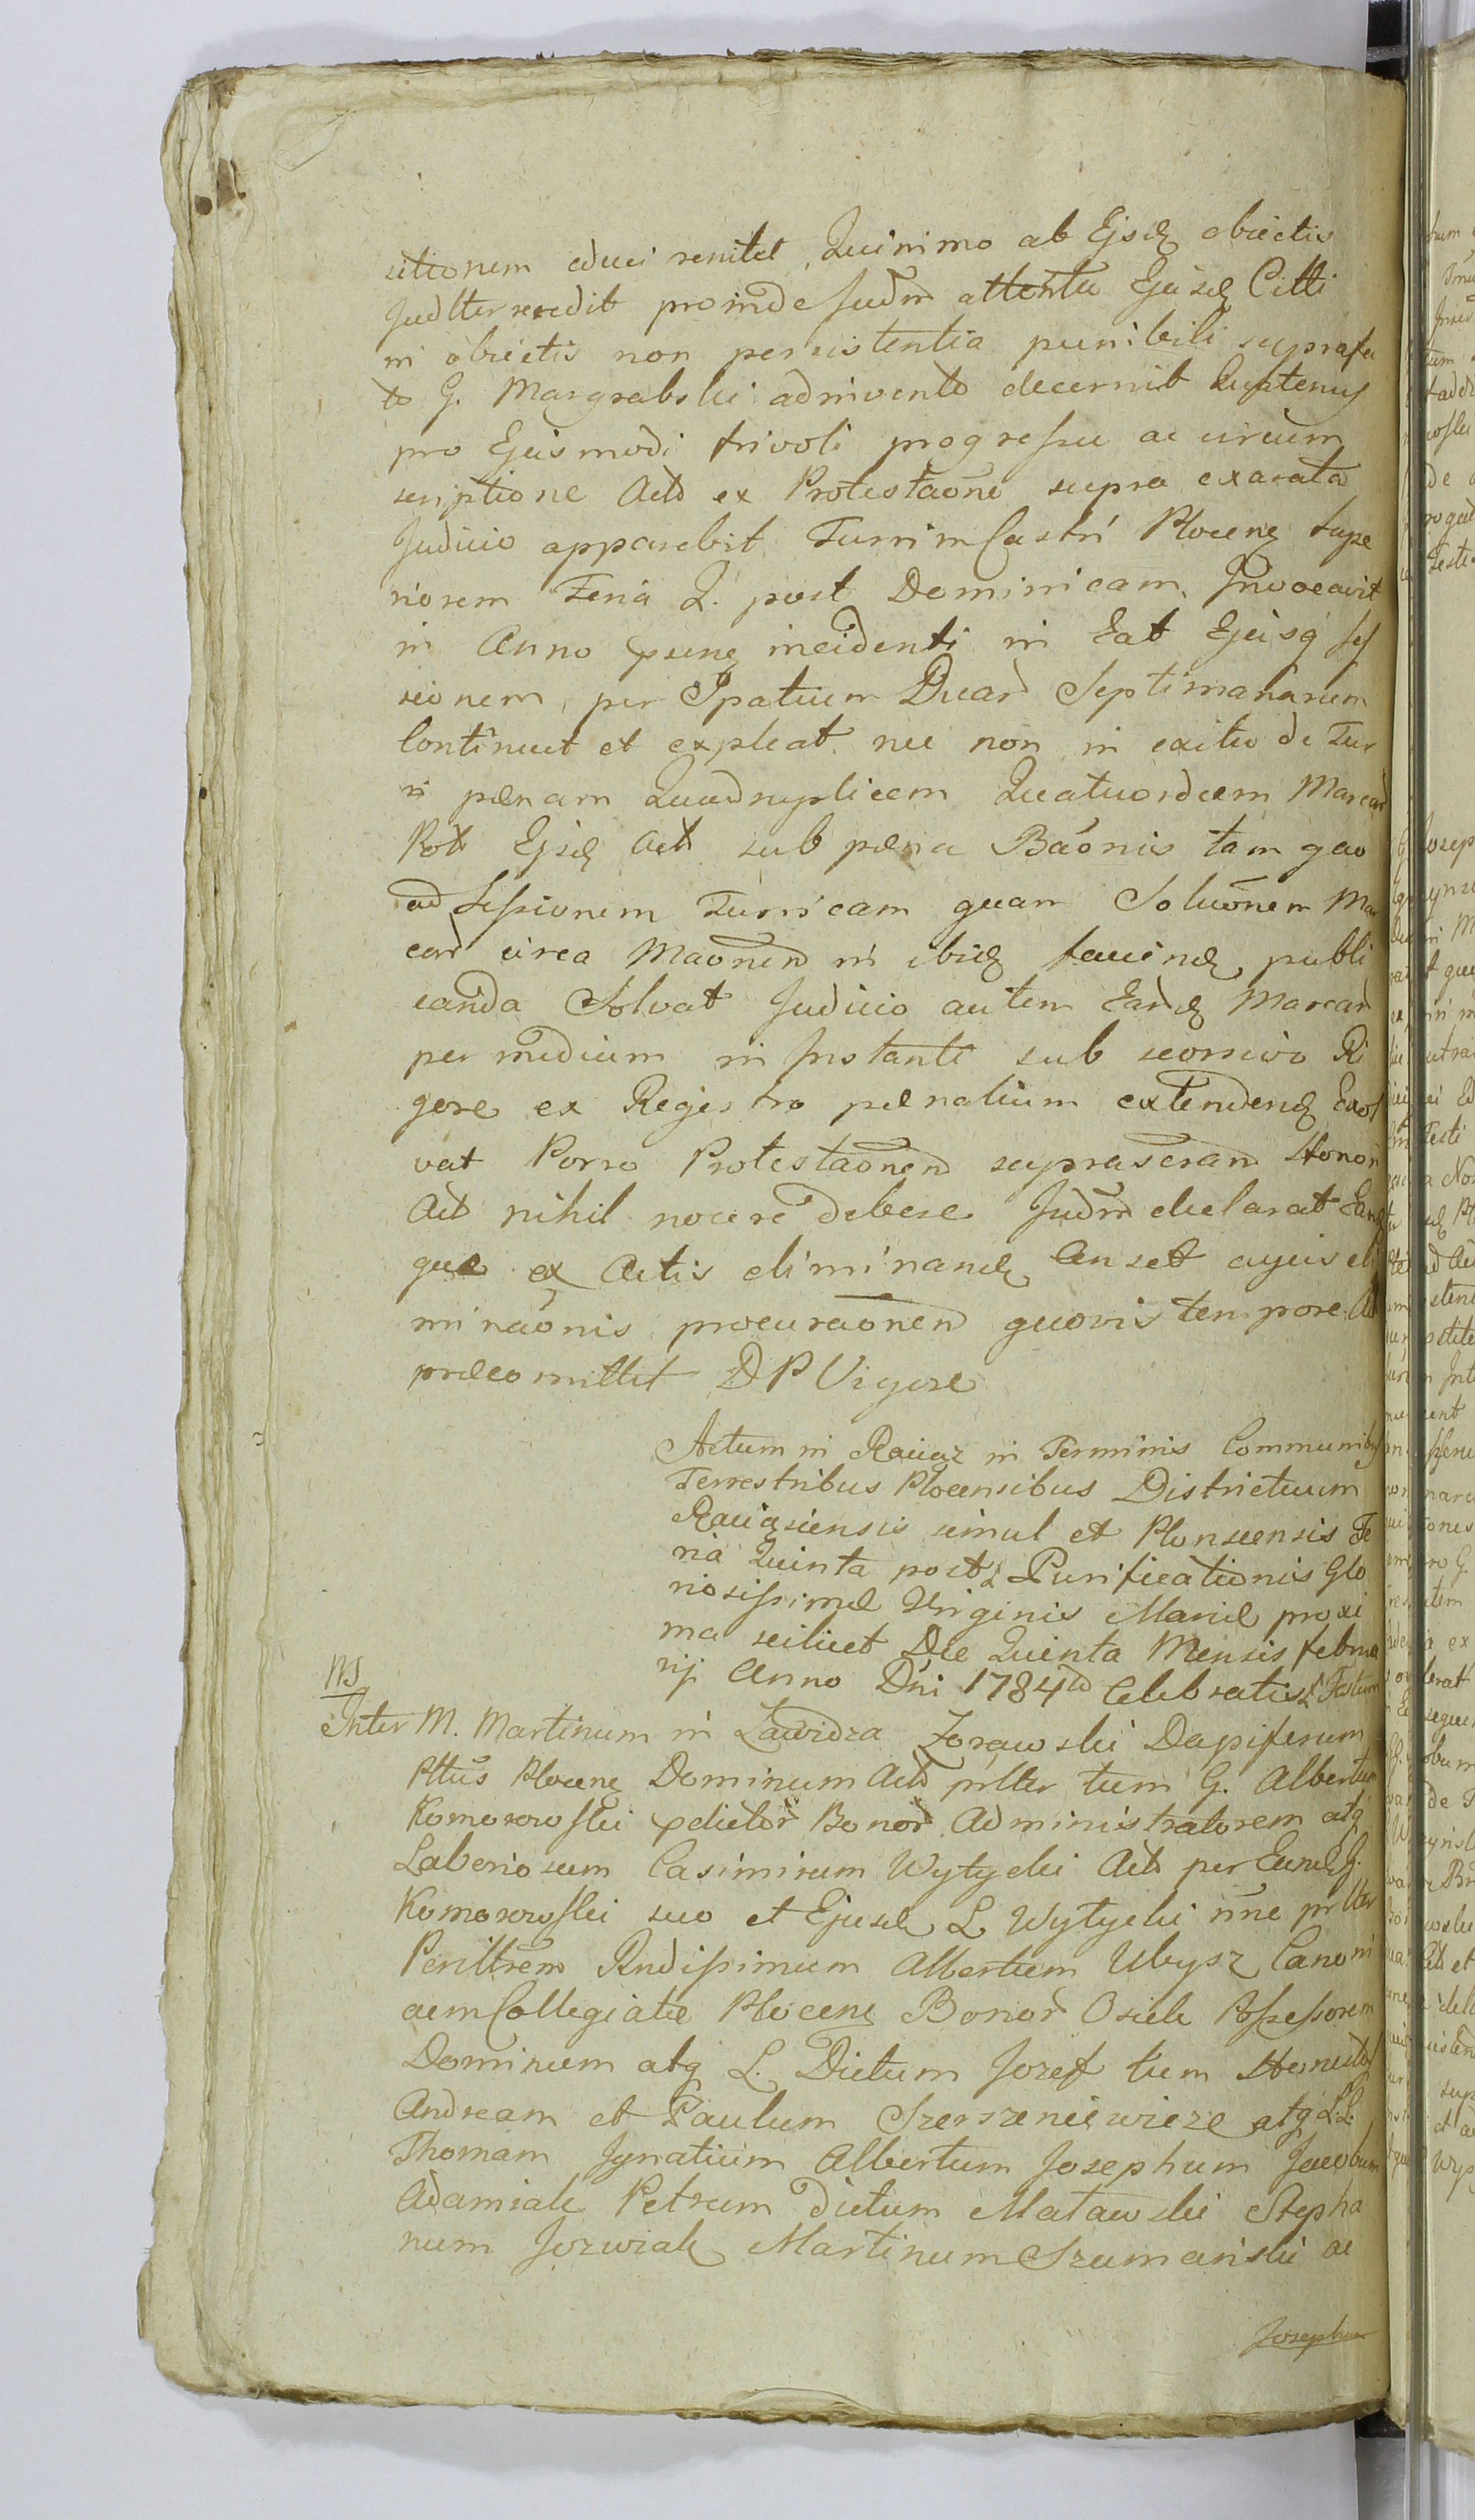 utionem educi renitet, Quinimo ab Ejsd obiectis
Judlter recedit proinde Judm attenta Ejusd Citti
in obiectis non persistentia punibili suprafa
to G. Margrabski adinvento decernit Quatenus
pro Ejusmodi frivoli progressu ac circum
scriptione Acto ex Protestaone supra exarata
Judicio apparebit Turrim Castri Plocen supe
riorem Feria 2. post Dominicam Invocavit
in Anno psenq incidenti in Eat Ejusq Ses
sionem per Spatium Duar Septimanarum
Continuet et expleat nec non in exitu de Tur
ri pænam Quadruplicem Quatuordecem Marcar
Pol Ejsd Act sub pæna Baonis tam quo
ad Sessionem Turricam quam Soluonem Mar
car circa Maonem in ibid faciend publi
canda Solvat Judicio autem Eard Marcar
per medium in Instanti sub seorsivo Ri
gore ex Regestro pænalium extendend Exol
vat Porro Protestaonem suprascram Honori
Act nihil nocere debere Judm declarat Eand
que ex Actis eliminand Censet cujus eli
minaonis procuraonem quovis tempore Act
præcomittit D P Vigore
Actum in Raciąz in Terminis Communibus
Terrestribus Plocensibus Districtuum
Raciąziensis simul et Plonscensis Fe
ria Quinta post Purificationis Glo
riosissimæ Virginis Mariæ proxi
ma scilicet Die Quinta Mensis Februa
rij Anno Dni 1784to Celebratis Festum
NS
Inter M. Martinum in Zawidza Zorawski Dapiferum
Plttus Plocene Dominum Act prlter tum G. Albertum
Komorowski pdictor Bonor Administratorem atq
Laboriosum Casimirum Wytycki Act per Eund G.
Komorowski suo et Ejusd L Wytycki nne prlter
Perilltrem Rndissimum Albertum Ubysz Canoni
cum Collegiatæ Plocene Bonor Osiek Possessorem
Dominum atq L. Dictum Jozef tum Honestos
Andream et Paulum Szerszeniewicze atq LL.
Thomam Ignatium Albertum Josephum Jacobum
Adamiak Petrum dictum Matawski Stepha
num Jozwiak Martinum Szumański ac
Josephum